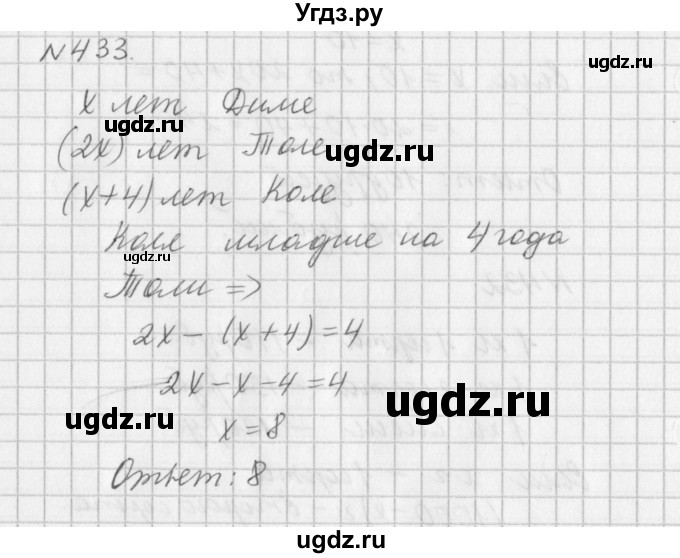 Угдз.ру
N433.
x лет Диме
ugdz.ru
(2x) лет Толе
ugdz.ru
ugdz.ru
(x+4) лет Коле
Коля младше на 4 года
ugdz.ru
Толи =>
2x-(x+4)=4
2x-x-4=4
ugdz.ru
ugdz.ru
x=8
ugdz.ru
Ответ: 8
ugdz.ru
ugdz.ru
Угдз.ру